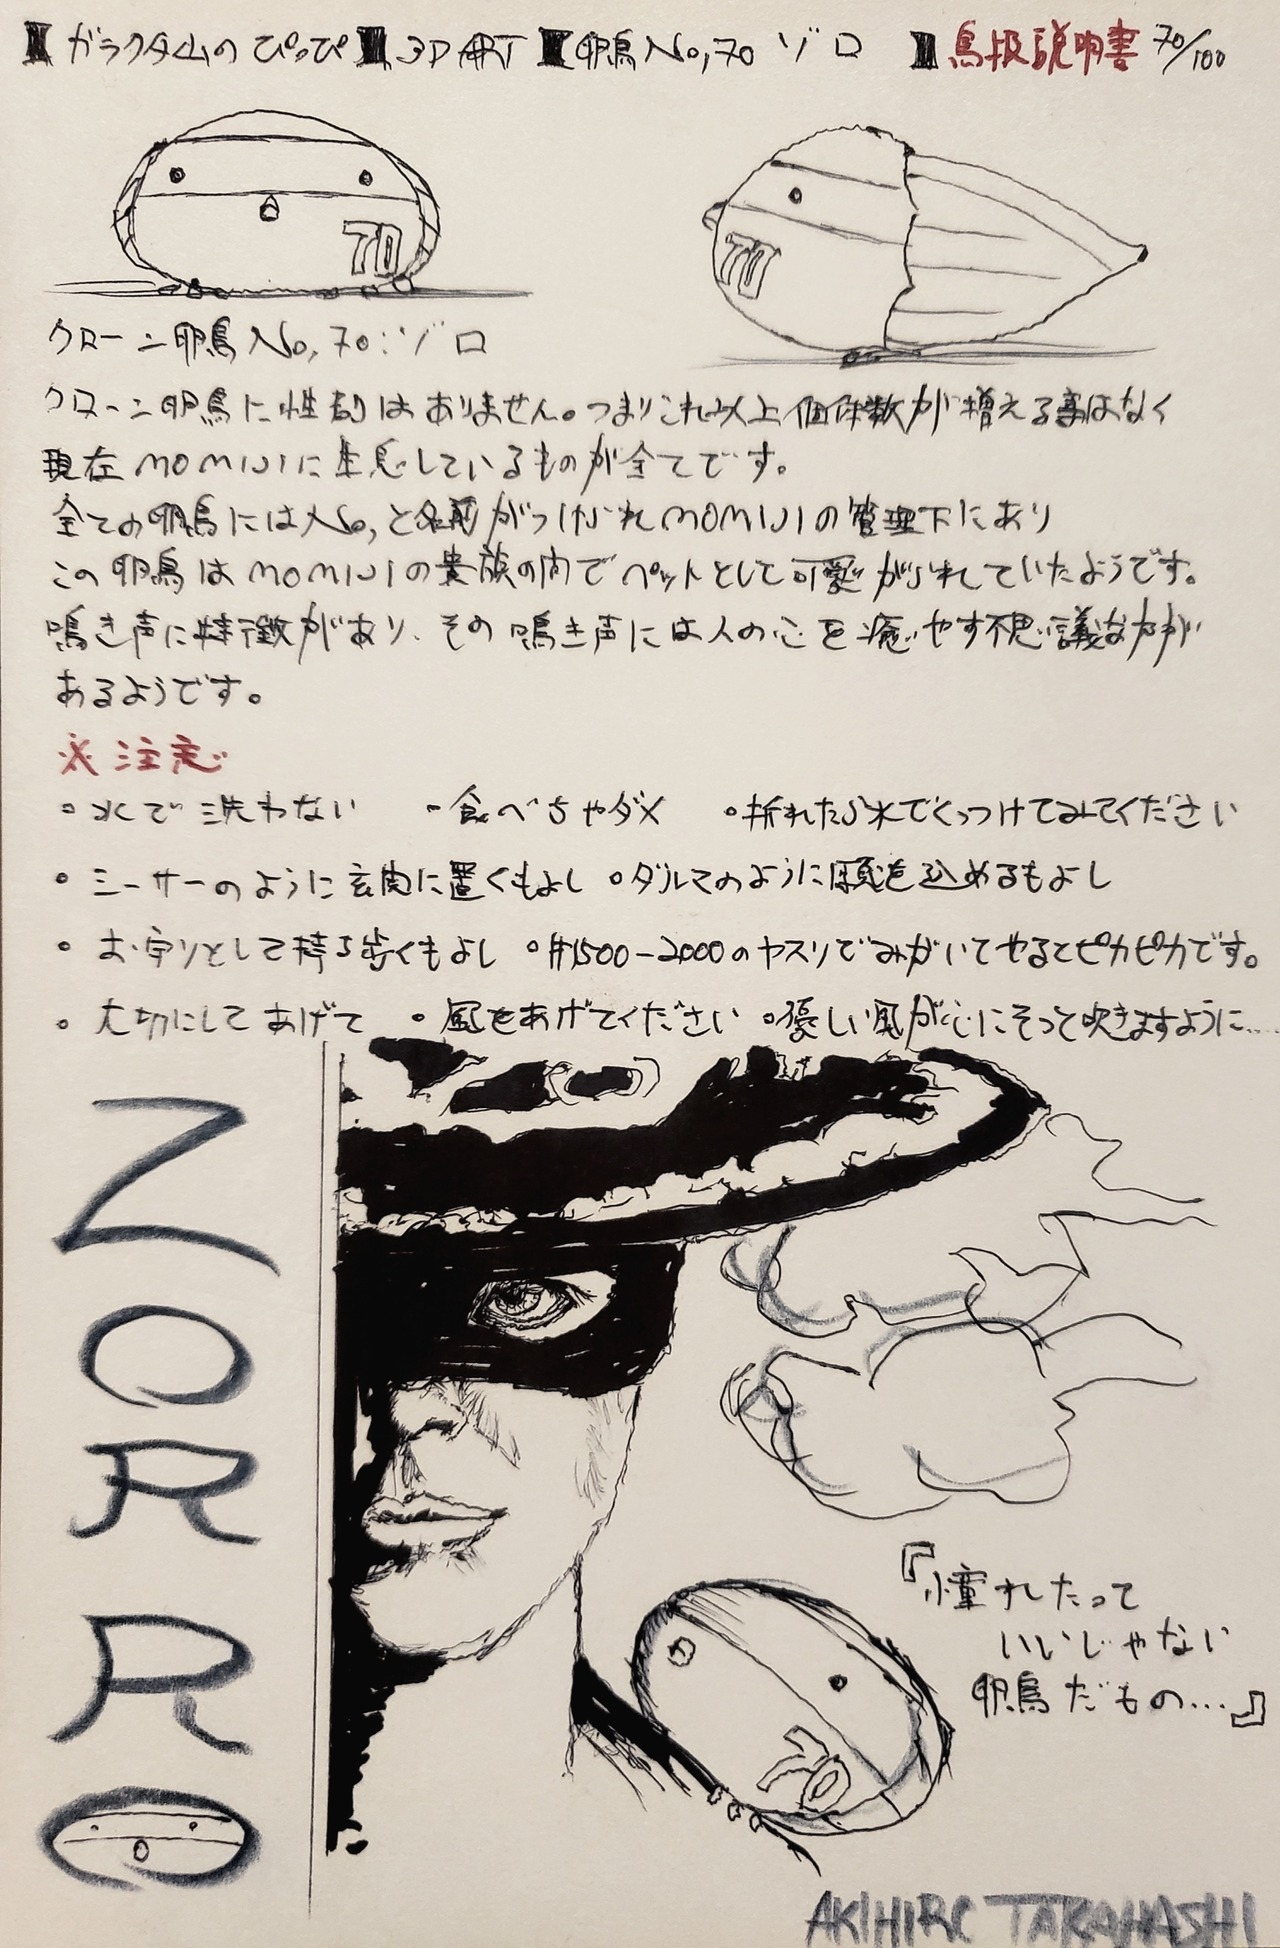 ガラクタ山のぴっぴ 3D ART 卵鳥No,70 ゾロ 鳥扱説明書 70/100
70
70
クローン卵鳥No,70:ゾロ
クローン卵鳥に性別はありません。つまりこれ以上個体数が増える事はなく
現在MOMIJIに生息しているものが全てです。
全ての卵鳥にはNo,と名前がつけられMOMIJIの管理下にあり
この卵鳥はMOMIJIの貴族の間でペットとして可愛がられていたようです。
鳴き声に特徴があり、その鳴き声には人の心を癒やす不思議な力が
あるようです。
※注意
・水で洗わない ・食べちゃダメ ・折れたら木でくっつけてみてください
・シーサーのように玄関に置くもよし ・ダルマのように願を込めるもよし
・お守りとして持ち歩くもよし ・#1500-2000のヤスリでみがいてやるとピカピカです。
・大切にしてあげて ・風をあげてください ・優しい風が心にそっと吹きますように…
ZORRO
『憧れたって
いいじゃない
卵鳥だもの…』
70
AKIHIRO TAKAHASHI